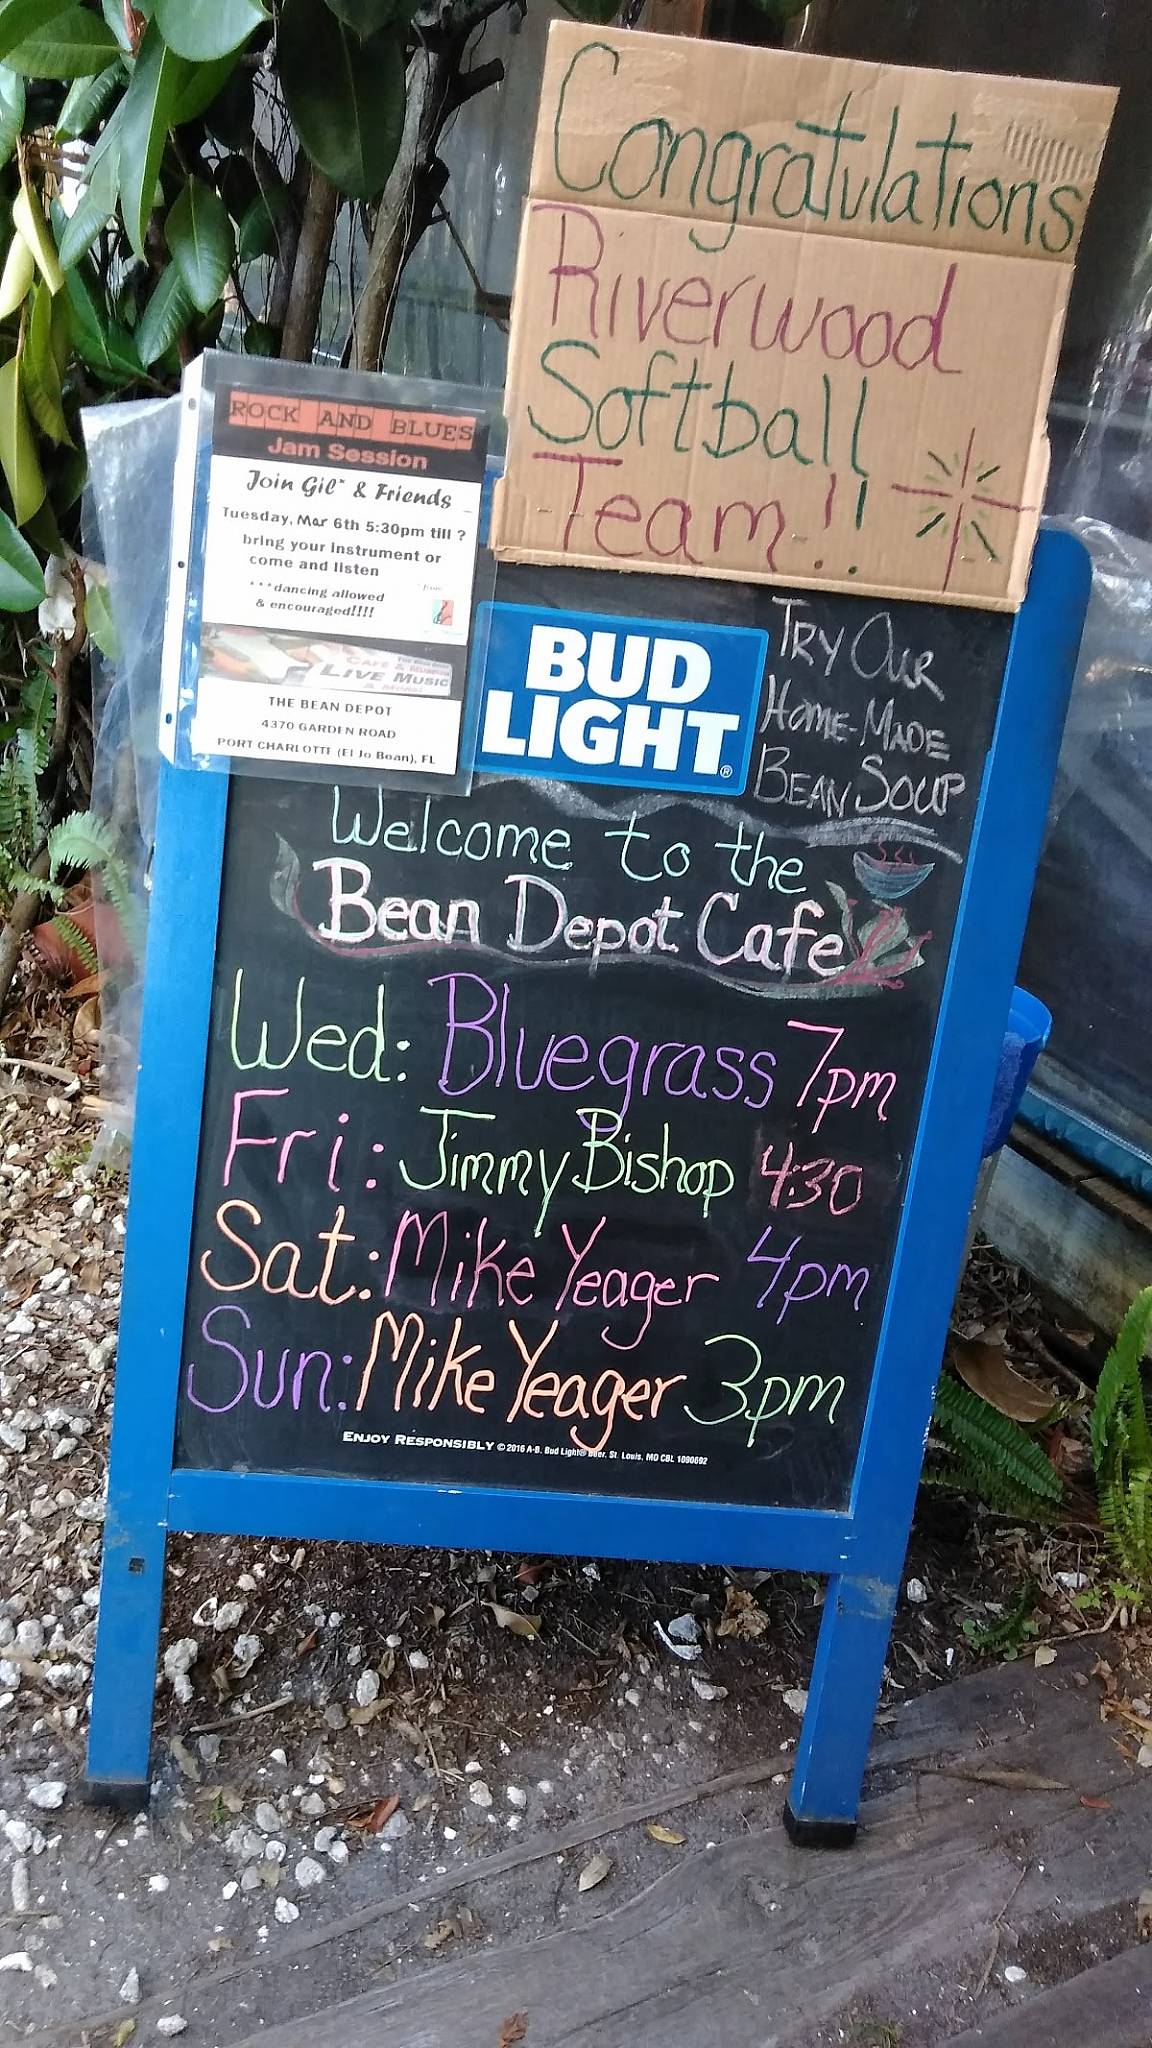 Congratulations
Riverwood
Softball
Team!!
ROCK AND BLUES
Jam Session
Join Gil* & Friends
Tuesday, Mar 6th 5:30pm till ?
bring your instrument or
come and listen
***dancing allowed
& encouraged!!!!
LIVE MUSIC
THE BEAN DEPOT
4370 GARDEN ROAD
PORT CHARLOTTE (El Jo Bean), FL
BUD
LIGHT®
TRY OUR
HOME-MADE
BEAN SOUP
Welcome to the
Bean Depot Cafe
Wed: Bluegrass 7pm
Fri: Jimmy Bishop 4:30
Sat: Mike Yeager 4pm
Sun: Mike Yeager 3pm
ENJOY RESPONSIBLY © 2016 A-B. Bud Light® Beer, St. Louis, MO CBL 1090692